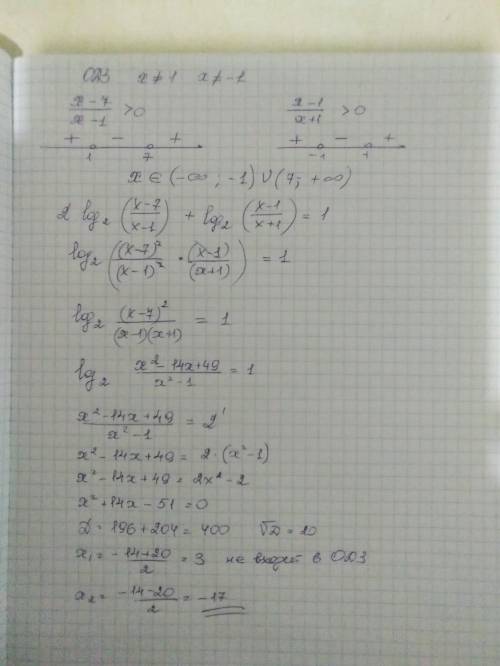 ОДЗ x ≠ 1 x ≠ -1
(x-7)/(x-1) > 0 (x-1)/(x+1) > 0
+ - + + - +
1 7 -1 1
x ∈ (-∞ ; -1) ∪ (7; +∞)
2 log₂ ((x-7)/(x-1)) + log₂ ((x-1)/(x+1)) = 1
log₂ ((x-7)²/(x-1)² • (x-1)/(x+1)) = 1
log₂ (x-7)²/((x-1)(x+1)) = 1
log₂ (x²-14x+49)/(x²-1) = 1
(x²-14x+49)/(x²-1) = 2¹
x²-14x+49 = 2·(x²-1)
x²-14x+49 = 2x²-2
x²+14x-51=0
D = 196+204=400 √D = 20
x₁ = (-14+20)/2 = 3 не входит в ОДЗ
x₂ = (-14-20)/2 = -17